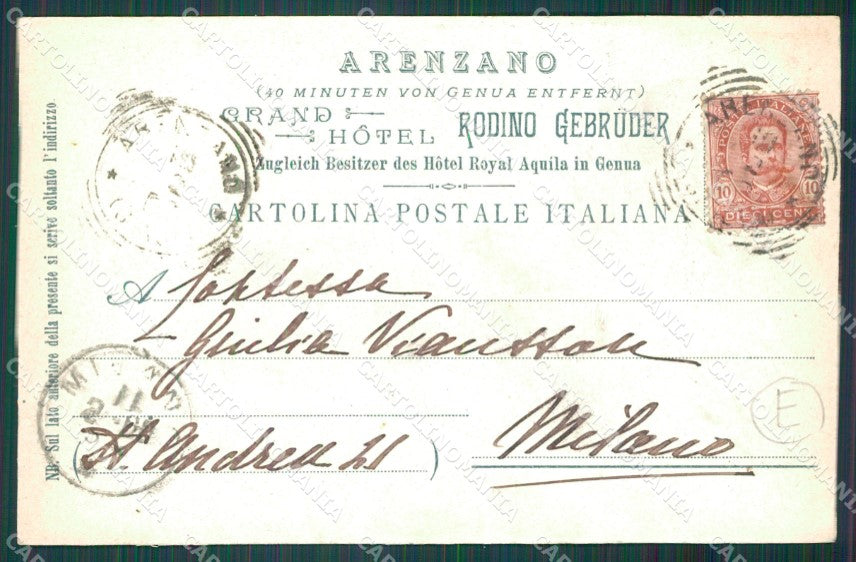 ARENZANO
(40 MINUTEN VON GENUA ENTFERNT)
GRAND HÔTEL RODINO GEBRÜDER
Zugleich Besitzer des Hôtel Royal Aquila in Genua
CARTOLINA POSTALE ITALIANA
A Contessa
Giulia
St. Andrea 21
Milano
NB. Sul lato anteriore della presente si scrive soltanto l'indirizzo
ARENZANO
POSTE ITALIANE
10 10
DIECI CENT
ARENZANO
MILANO
11
E
CARTOLINOMANIA